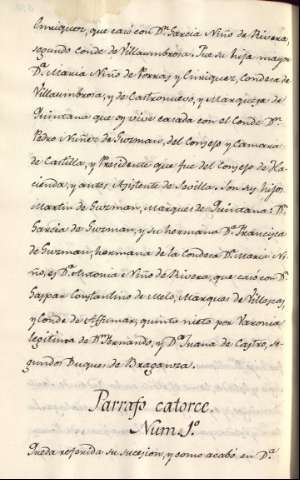 Enriquez, que casó con Dⁿ. Garcia Niño de Rivera,
segundo conde de Villaumbrosa. Fue su hija mayor
Dª. Maria Niño de Porras, y Enriquez, Condesa de
Villaumbrosa, y de Castronuevo, y Marquesa de
Quintana que oy vive casada con el Conde Dⁿ.
Pedro Nuñez de Guzman, del Consejo y Camara
de Castilla, y Presidente que fue del Consejo de Ha-
cienda, y antes Asistente de Sevilla. Son sus hijos
Martin de Guzman, Marques de Quintana: Dⁿ.
Garcia de Guzman, y su hermana Dª. Francisca
de Guzman; hermana de la Condesa Dª. Maria Ni-
ño, es Dª. Antonia Niño de Rivera, que casó con Dⁿ.
Gaspar Constantino de Melo, Marques de Vellosca,
y Conde de Assumar, quinto nieto por Varonia
legitima de Dⁿ. Fernando, y Dª. Juana de Castro, se-
gundos Duques de Braganza.
Parrafo catorce.
Num. 1º.
Queda referida su sucesion, y como acabó en Dª.